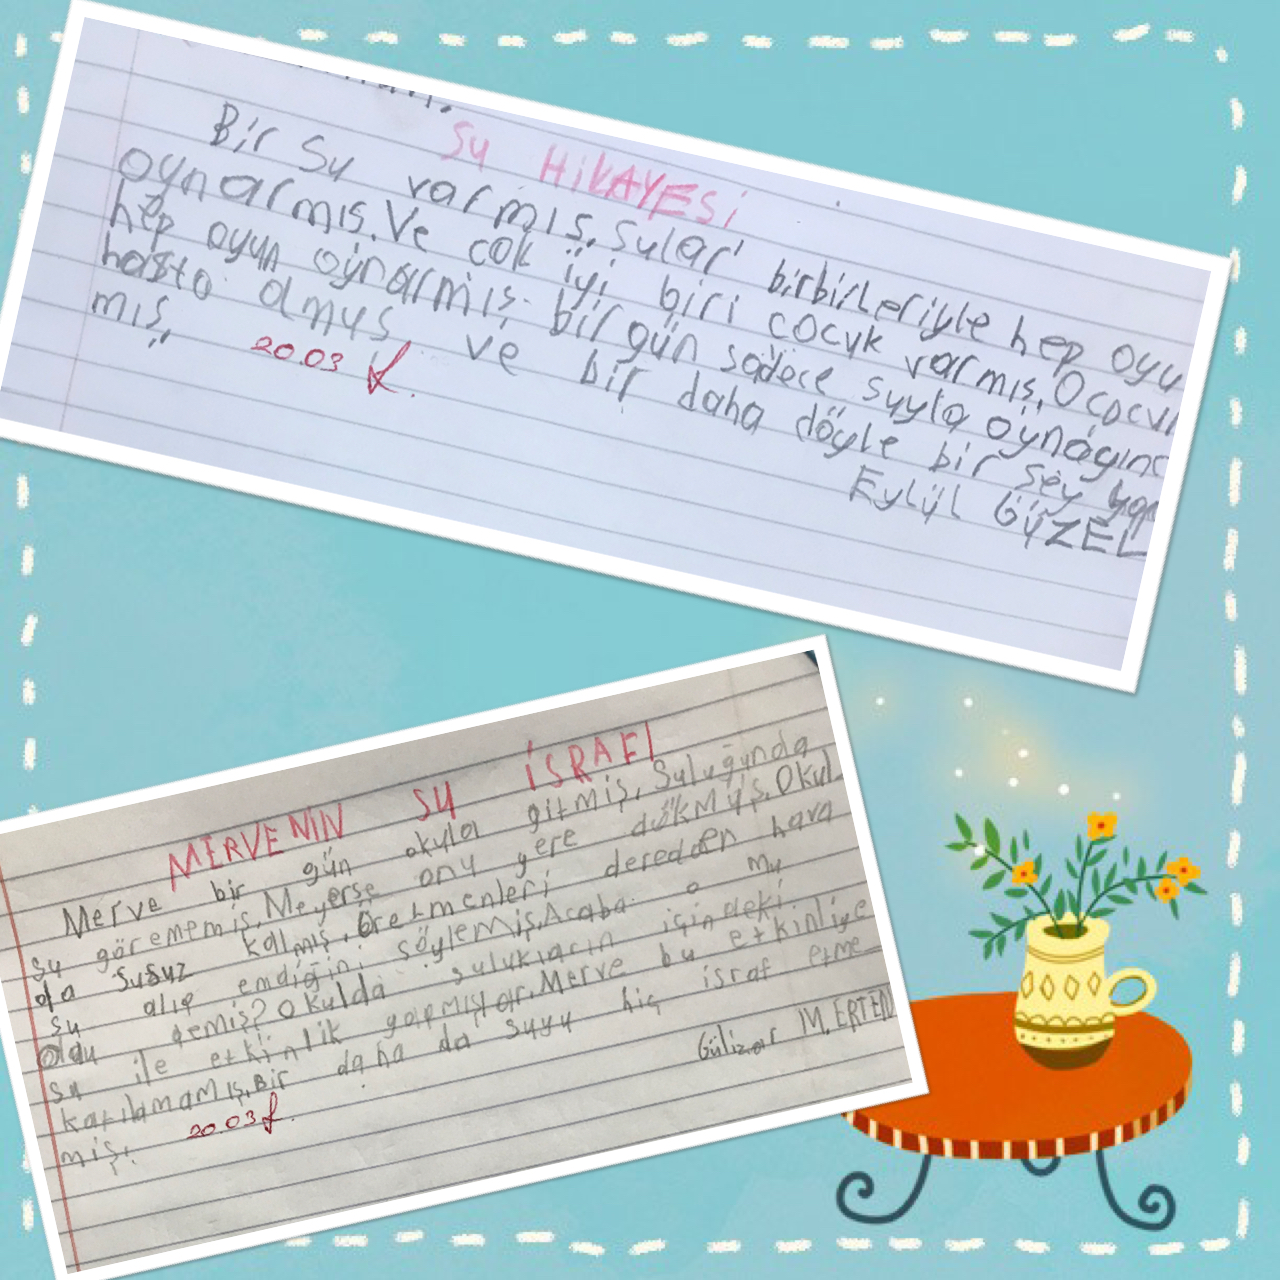 SU HİKAYESİ
Bir Su varmış. Sular birbirleriyle hep oyu
oynarmış. Ve çok iyi biri çocuk varmış. O çocu
hep oyun oynarmış. bir gün sadece suyla oynayınc
hasta olmuş ve bir daha döyle bir şey yap
mış.
20.03
Eylül GÜZEL
MERVENİN SU İSRAFI
Merve bir gün okula gitmiş. Suluğunda
su görememiş. Meyerse onu yere dökmüş. Okul
da susuz kalmış. Öretmenleri dereden hava
su alıp emdiğini söylemiş. Acaba o mu
oldu demiş? Okulda sulukların içindeki
su ile etkinlik yapmışlar. Merve bu etkinliye
katılamamış. Bir daha da suyu hiç israf etme
miş.
20.03
Gülizar M. ERTEN